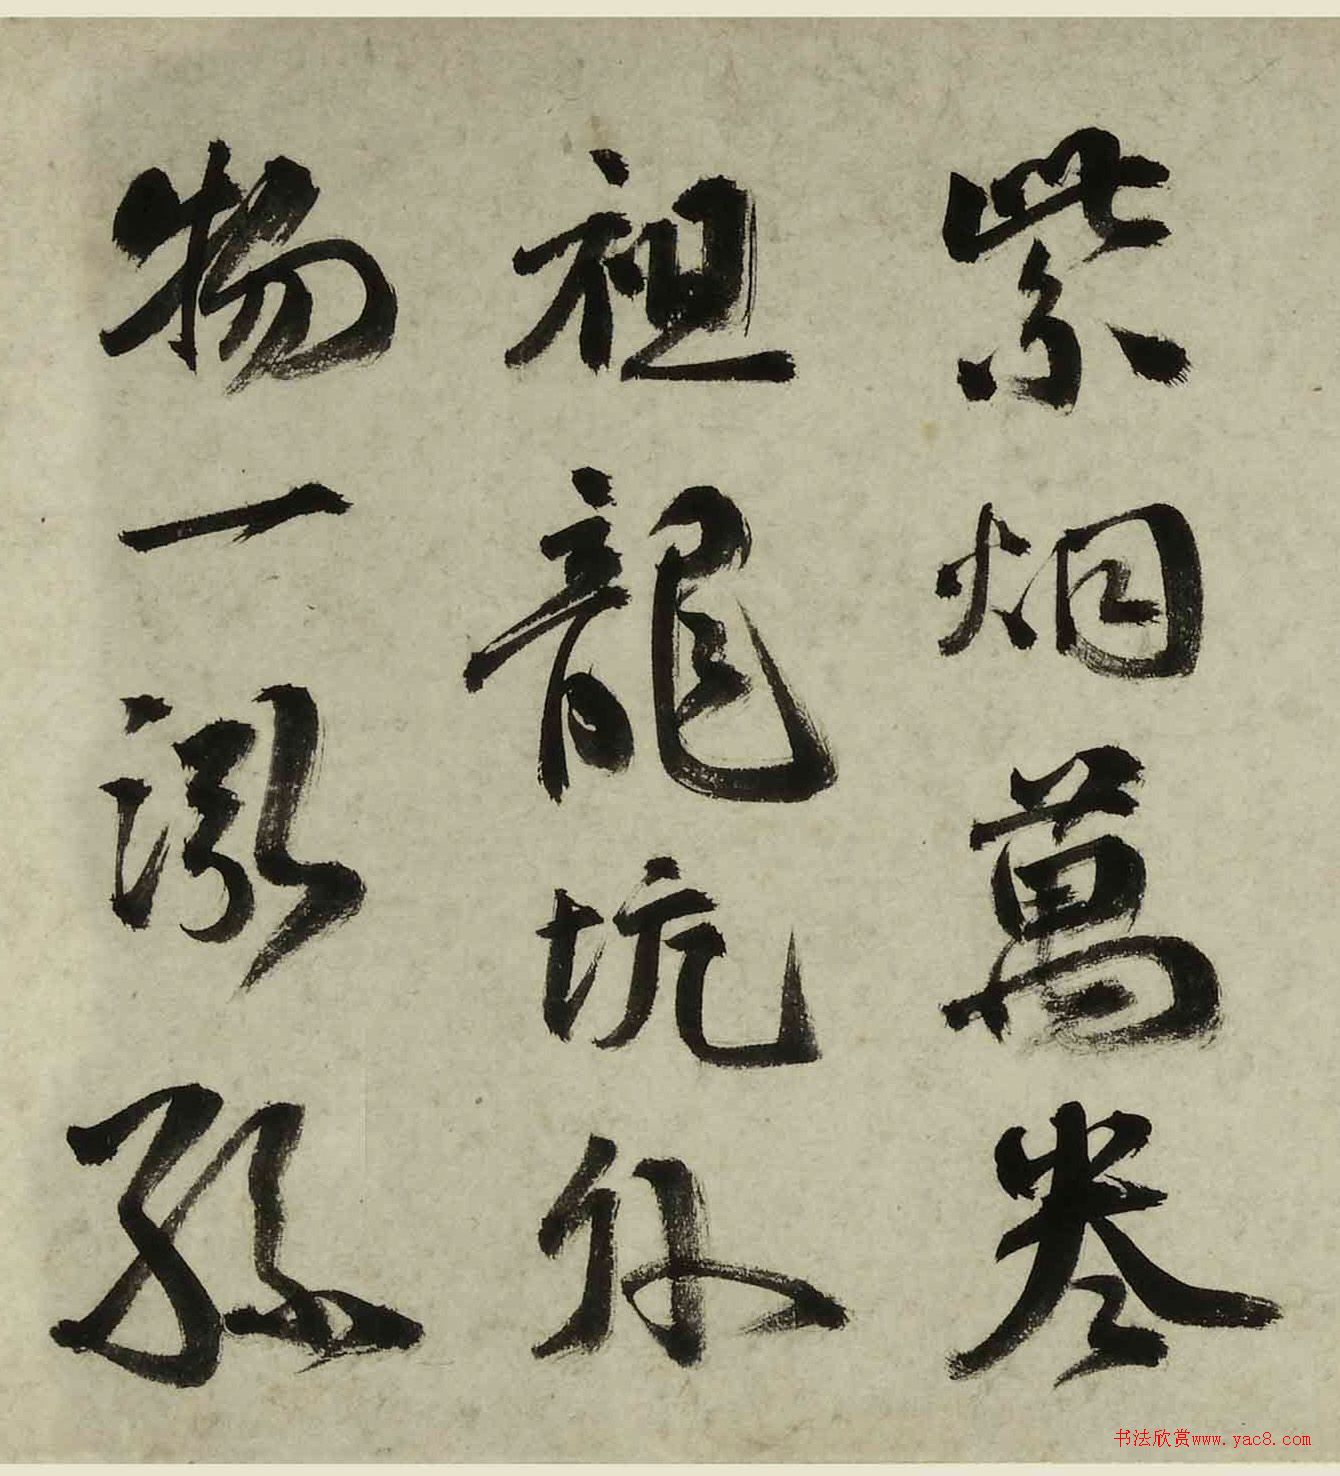 紫烟萬卷
祖龍坑外
物一泓孫
书法欣赏www.yac8.com